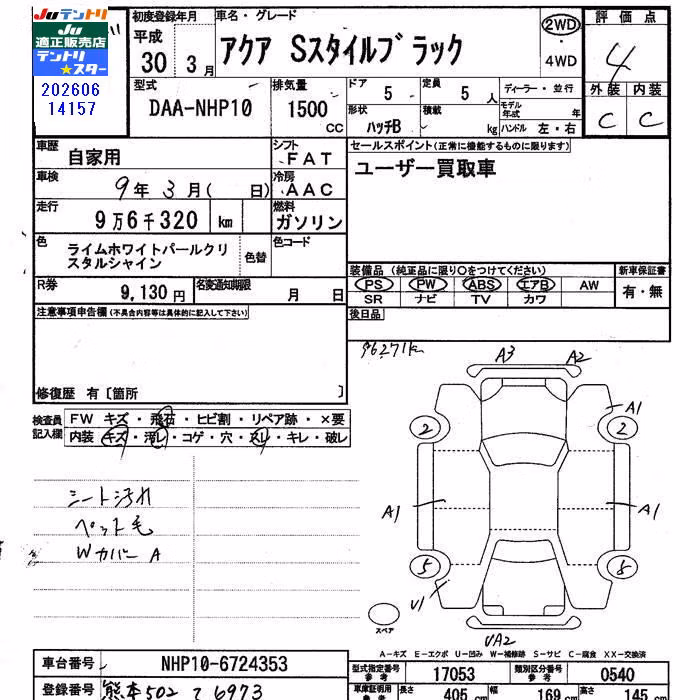 Juテントリ
Ju
適正販売店
テントリ
★スター
202606
14157
初度登録年月
平成
30 3月
車名・グレード
アクア Sスタイルブラック
2WD
・
4WD
評価点
4
外装 内装
C C
型式
DAA-NHP10
排気量
1500 CC
ドア
5
定員
5 人
形状
ハッチB
積載
kg
ディーラー・並行
モデル年式 年
ハンドル 左・右
車歴
自家用
シフト
FAT
車検
9年 3月( 日)
冷房
AAC
走行
9万6千320 km
燃料
ガソリン
色
ライムホワイトパールクリスタルシャイン
色替
色コード
R券
9,130 円
名変通知期限
月 日
セールスポイント(正常に機能するものに限ります)
ユーザー買取車
装備品(純正品に限り○をつけてください)
PS PW ABS エアB AW
SR ナビ TV カワ
新車保証書
有・無
後日品
注意事項申告欄(不具合内容等は具体的に記入して下さい)
修復歴 有〔箇所 〕
96271km
検査員記入欄
FW キズ・飛石・ヒビ割・リペア跡・×要
内装 キズ・汚レ・コゲ・穴・スレ・キレ・破レ
シート汚れ
ペット毛
Wカバー A
A3 A2
A1
2 2
A1 A1
5 8
U1
スペア
UA2
A-キズ E-エクボ U-凹み W-補修跡 S-サビ C-腐食 XX-交換済
車台番号 NHP10-6724353
登録番号 熊本502 て 6973
型式指定番号 参考 17053
類別区分番号 参考 0540
車庫証明用 参考
長さ 405 cm 幅 169 cm 高さ 145 cm